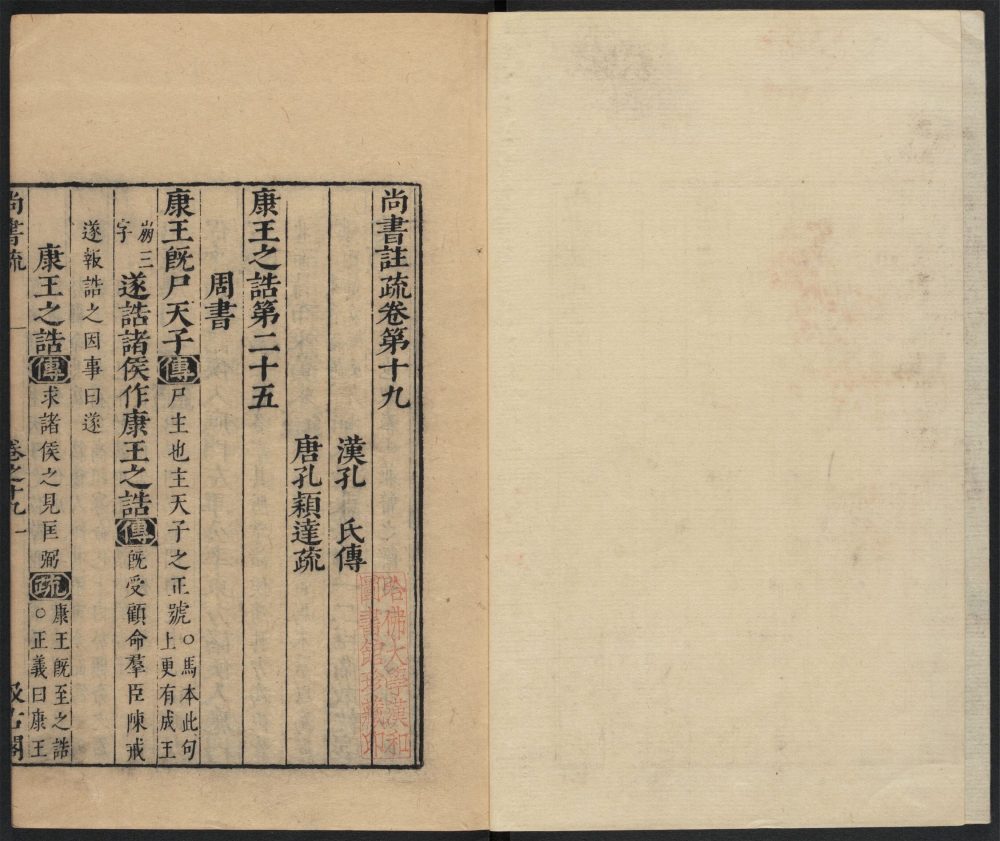 尚書註疏卷第十九
漢孔　氏傳
唐孔穎達疏
康王之誥第二十五
周書
康王旣尸天子傳尸主也主天子之正號○馬本此句上更有成王
崩三字遂誥諸侯作康王之誥傳旣受顧命羣臣陳戒
遂報誥之因事曰遂
康王之誥傳求諸侯之見匡弼疏康王旣至之誥○正義曰康王
尚書疏　卷之十九　一　汲古閣
哈佛大學漢和
圖書館珍藏印